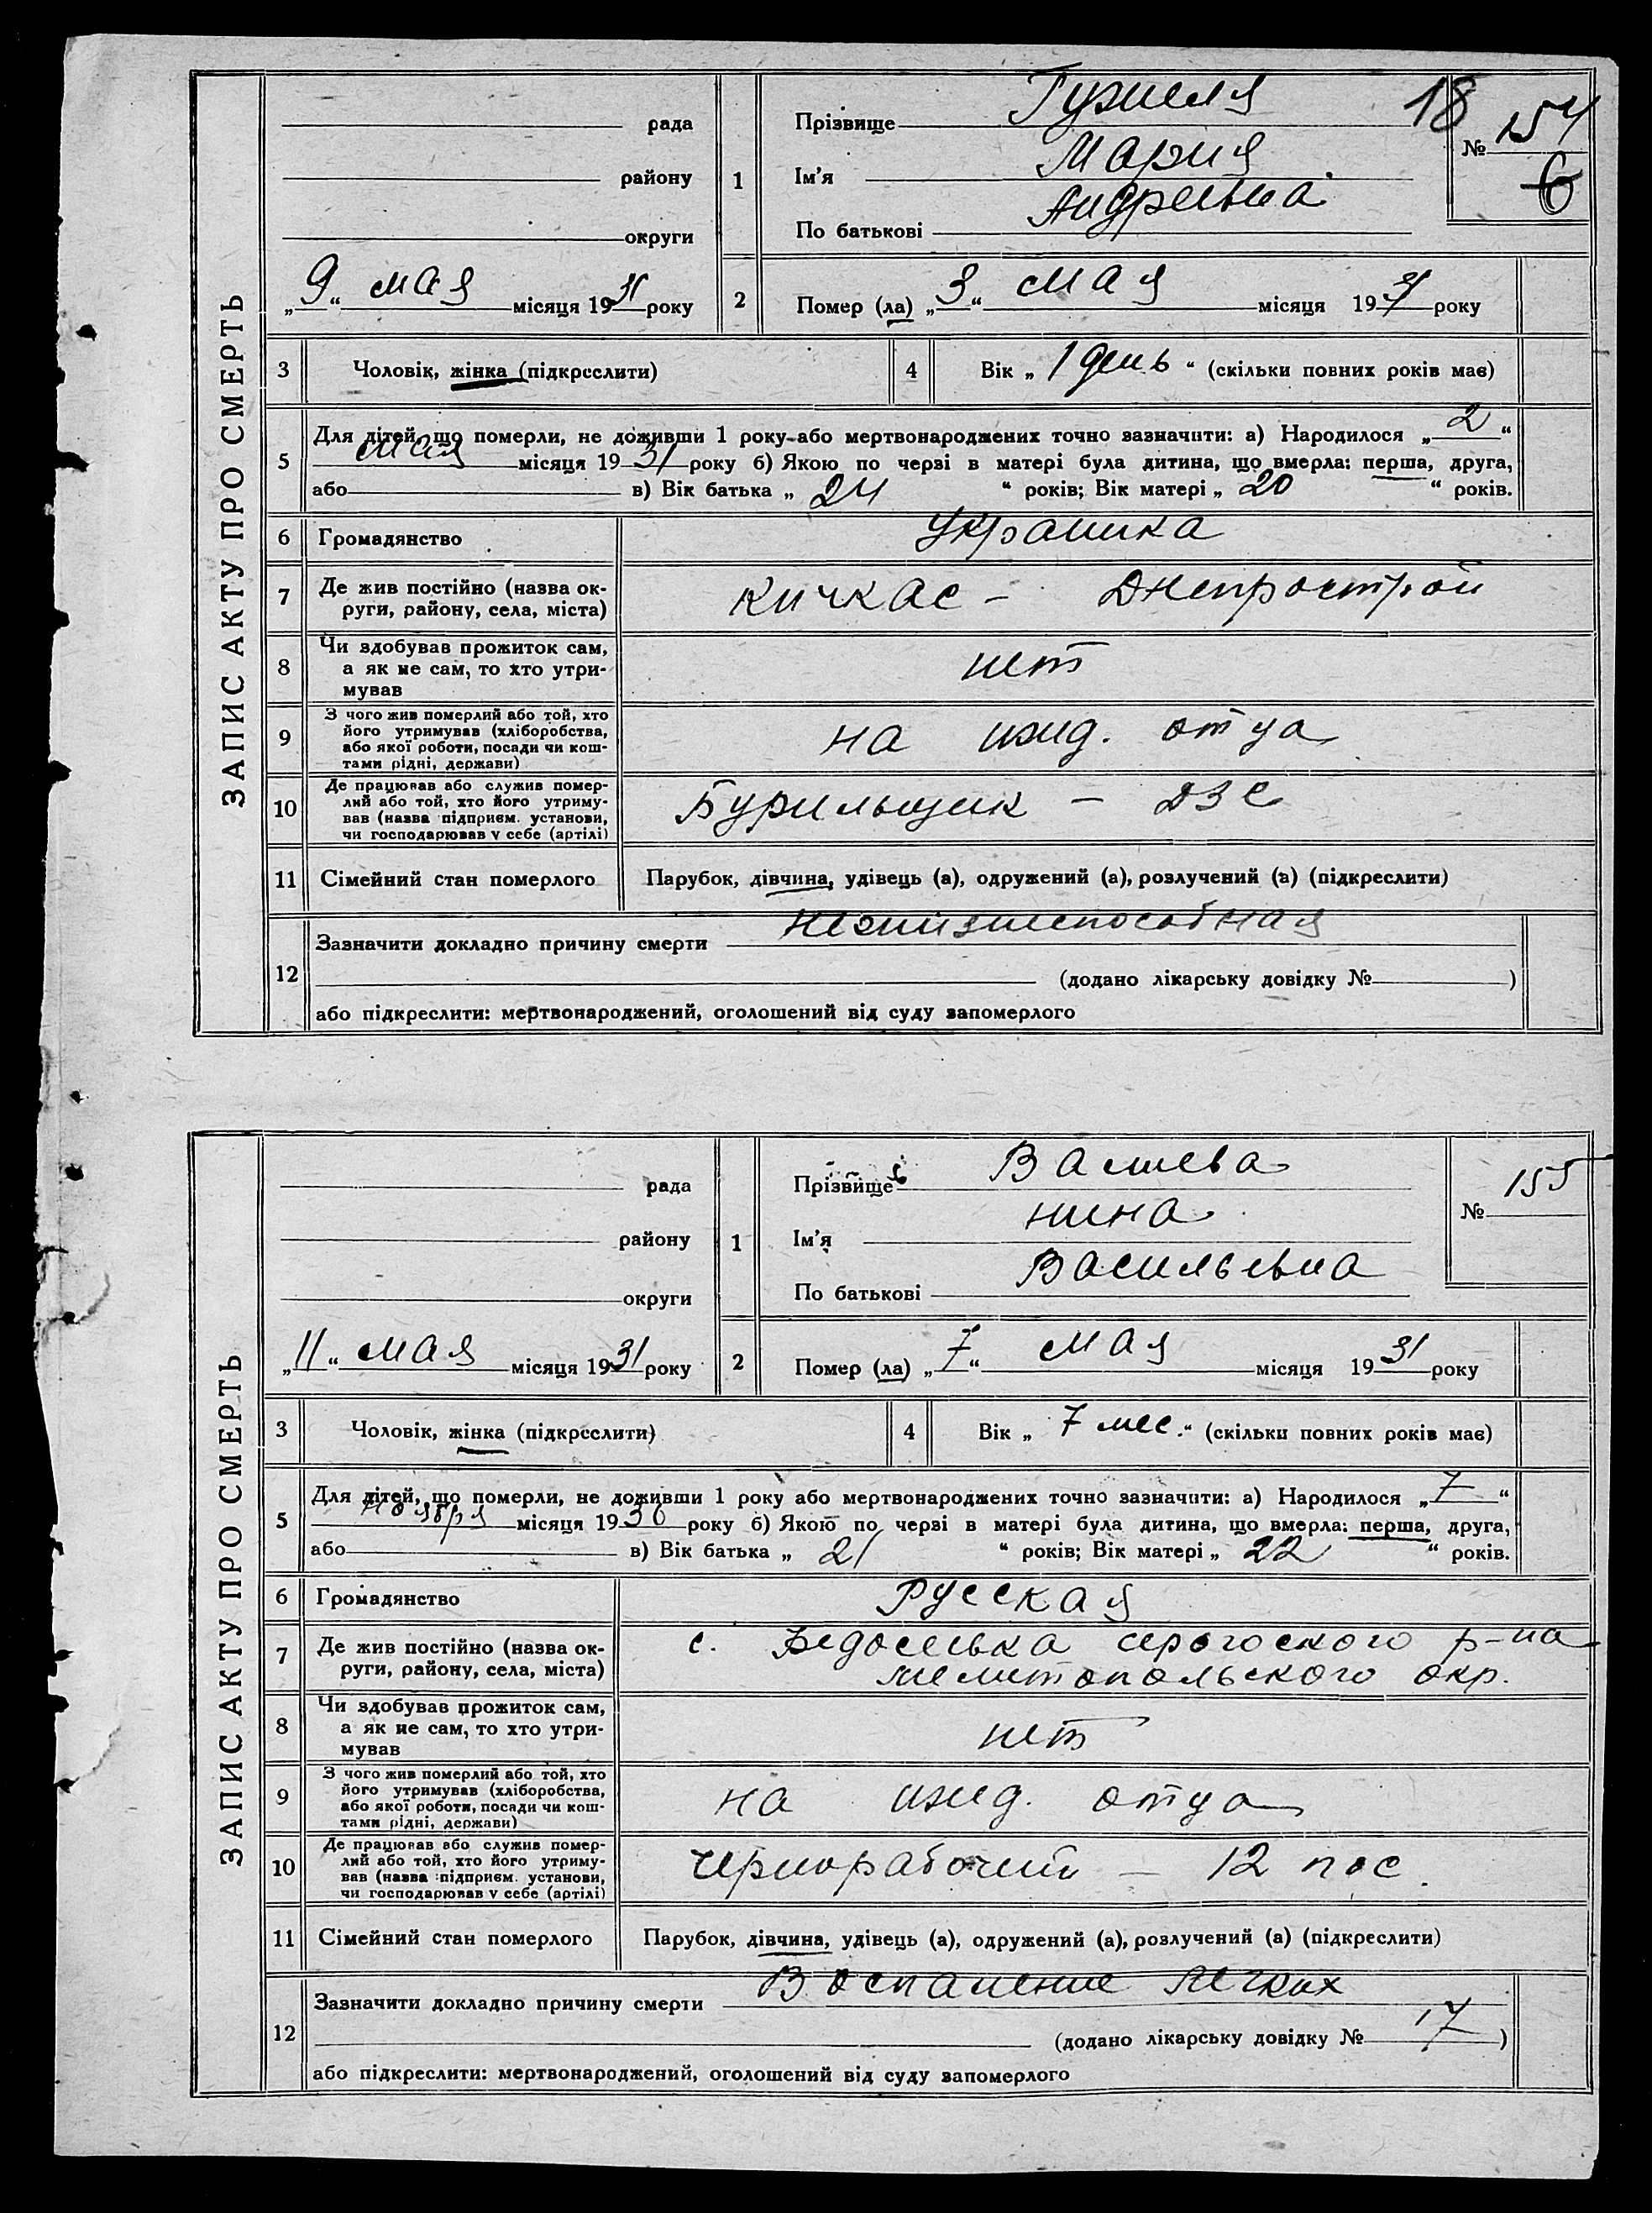 ЗАПИС АКТУ ПРО СМЕРТЬ
рада
району
округи
„9“ мая місяця 1931 року
1
Прізвище
Ім'я Мария
По батькові Андреевна
18
№ 154
6
2 Помер (ла) „3“ мая місяця 1931 року
3 Чоловік, жінка (підкреслити)
4 Вік „1 день“ (скільки повних років має)
5 Для дітей, що померли, не доживши 1 року або мертвонароджених точно зазначити: а) Народилося „2“
мая місяця 1931 року б) Якою по черзі в матері була дитина, що вмерла: перша, друга,
або в) Вік батька „24“ років; Вік матері „20“ років.
6 Громадянство Украинка
7 Де жив постійно (назва ок-
руги, району, села, міста)
Кичкас – Днепрострой
8 Чи здобував прожиток сам,
а як не сам, то хто утри-
мував
нет
9 З чого жив померлий або той, хто
його утримував (хліборобства,
або якої роботи, посади чи кош-
тами рідні, держави)
на ижд. отца
10 Де працював або служив помер-
лий або той, хто його утриму-
вав (назва підприєм. установи,
чи господарював у себе (артілі)
Бурильщик – ДЗС
11 Сімейний стан померлого Парубок, дівчина, удівець (а), одружений (а), розлучений (а) (підкреслити)
12 Зазначити докладно причину смерти Нежизнеспособная
(додано лікарську довідку № )
або підкреслити: мертвонароджений, оголошений від суду запомерлого
ЗАПИС АКТУ ПРО СМЕРТЬ
рада
району
округи
„11“ мая місяця 1931 року
1
Прізвище Валиева
Ім'я Нина
По батькові Васильевна
№ 155
2 Помер (ла) „7“ мая місяця 1931 року
3 Чоловік, жінка (підкреслити)
4 Вік „7 мес.“ (скільки повних років має)
5 Для дітей, що померли, не доживши 1 року або мертвонароджених точно зазначити: а) Народилося „7“
ноября місяця 1930 року б) Якою по черзі в матері була дитина, що вмерла: перша, друга,
або в) Вік батька „21“ років; Вік матері „22“ років.
6 Громадянство Русская
7 Де жив постійно (назва ок-
руги, району, села, міста)
с. серогоского р-на
мелитопольского окр.
8 Чи здобував прожиток сам,
а як не сам, то хто утри-
мував
нет
9 З чого жив померлий або той, хто
його утримував (хліборобства,
або якої роботи, посади чи кош-
тами рідні, держави)
на ижд. отца
10 Де працював або служив помер-
лий або той, хто його утриму-
вав (назва підприєм. установи,
чи господарював у себе (артілі)
Чернорабочий – 12 пос.
11 Сімейний стан померлого Парубок, дівчина, удівець (а), одружений (а), розлучений (а) (підкреслити)
12 Зазначити докладно причину смерти Воспаление легких
(додано лікарську довідку № 17)
або підкреслити: мертвонароджений, оголошений від суду запомерлого